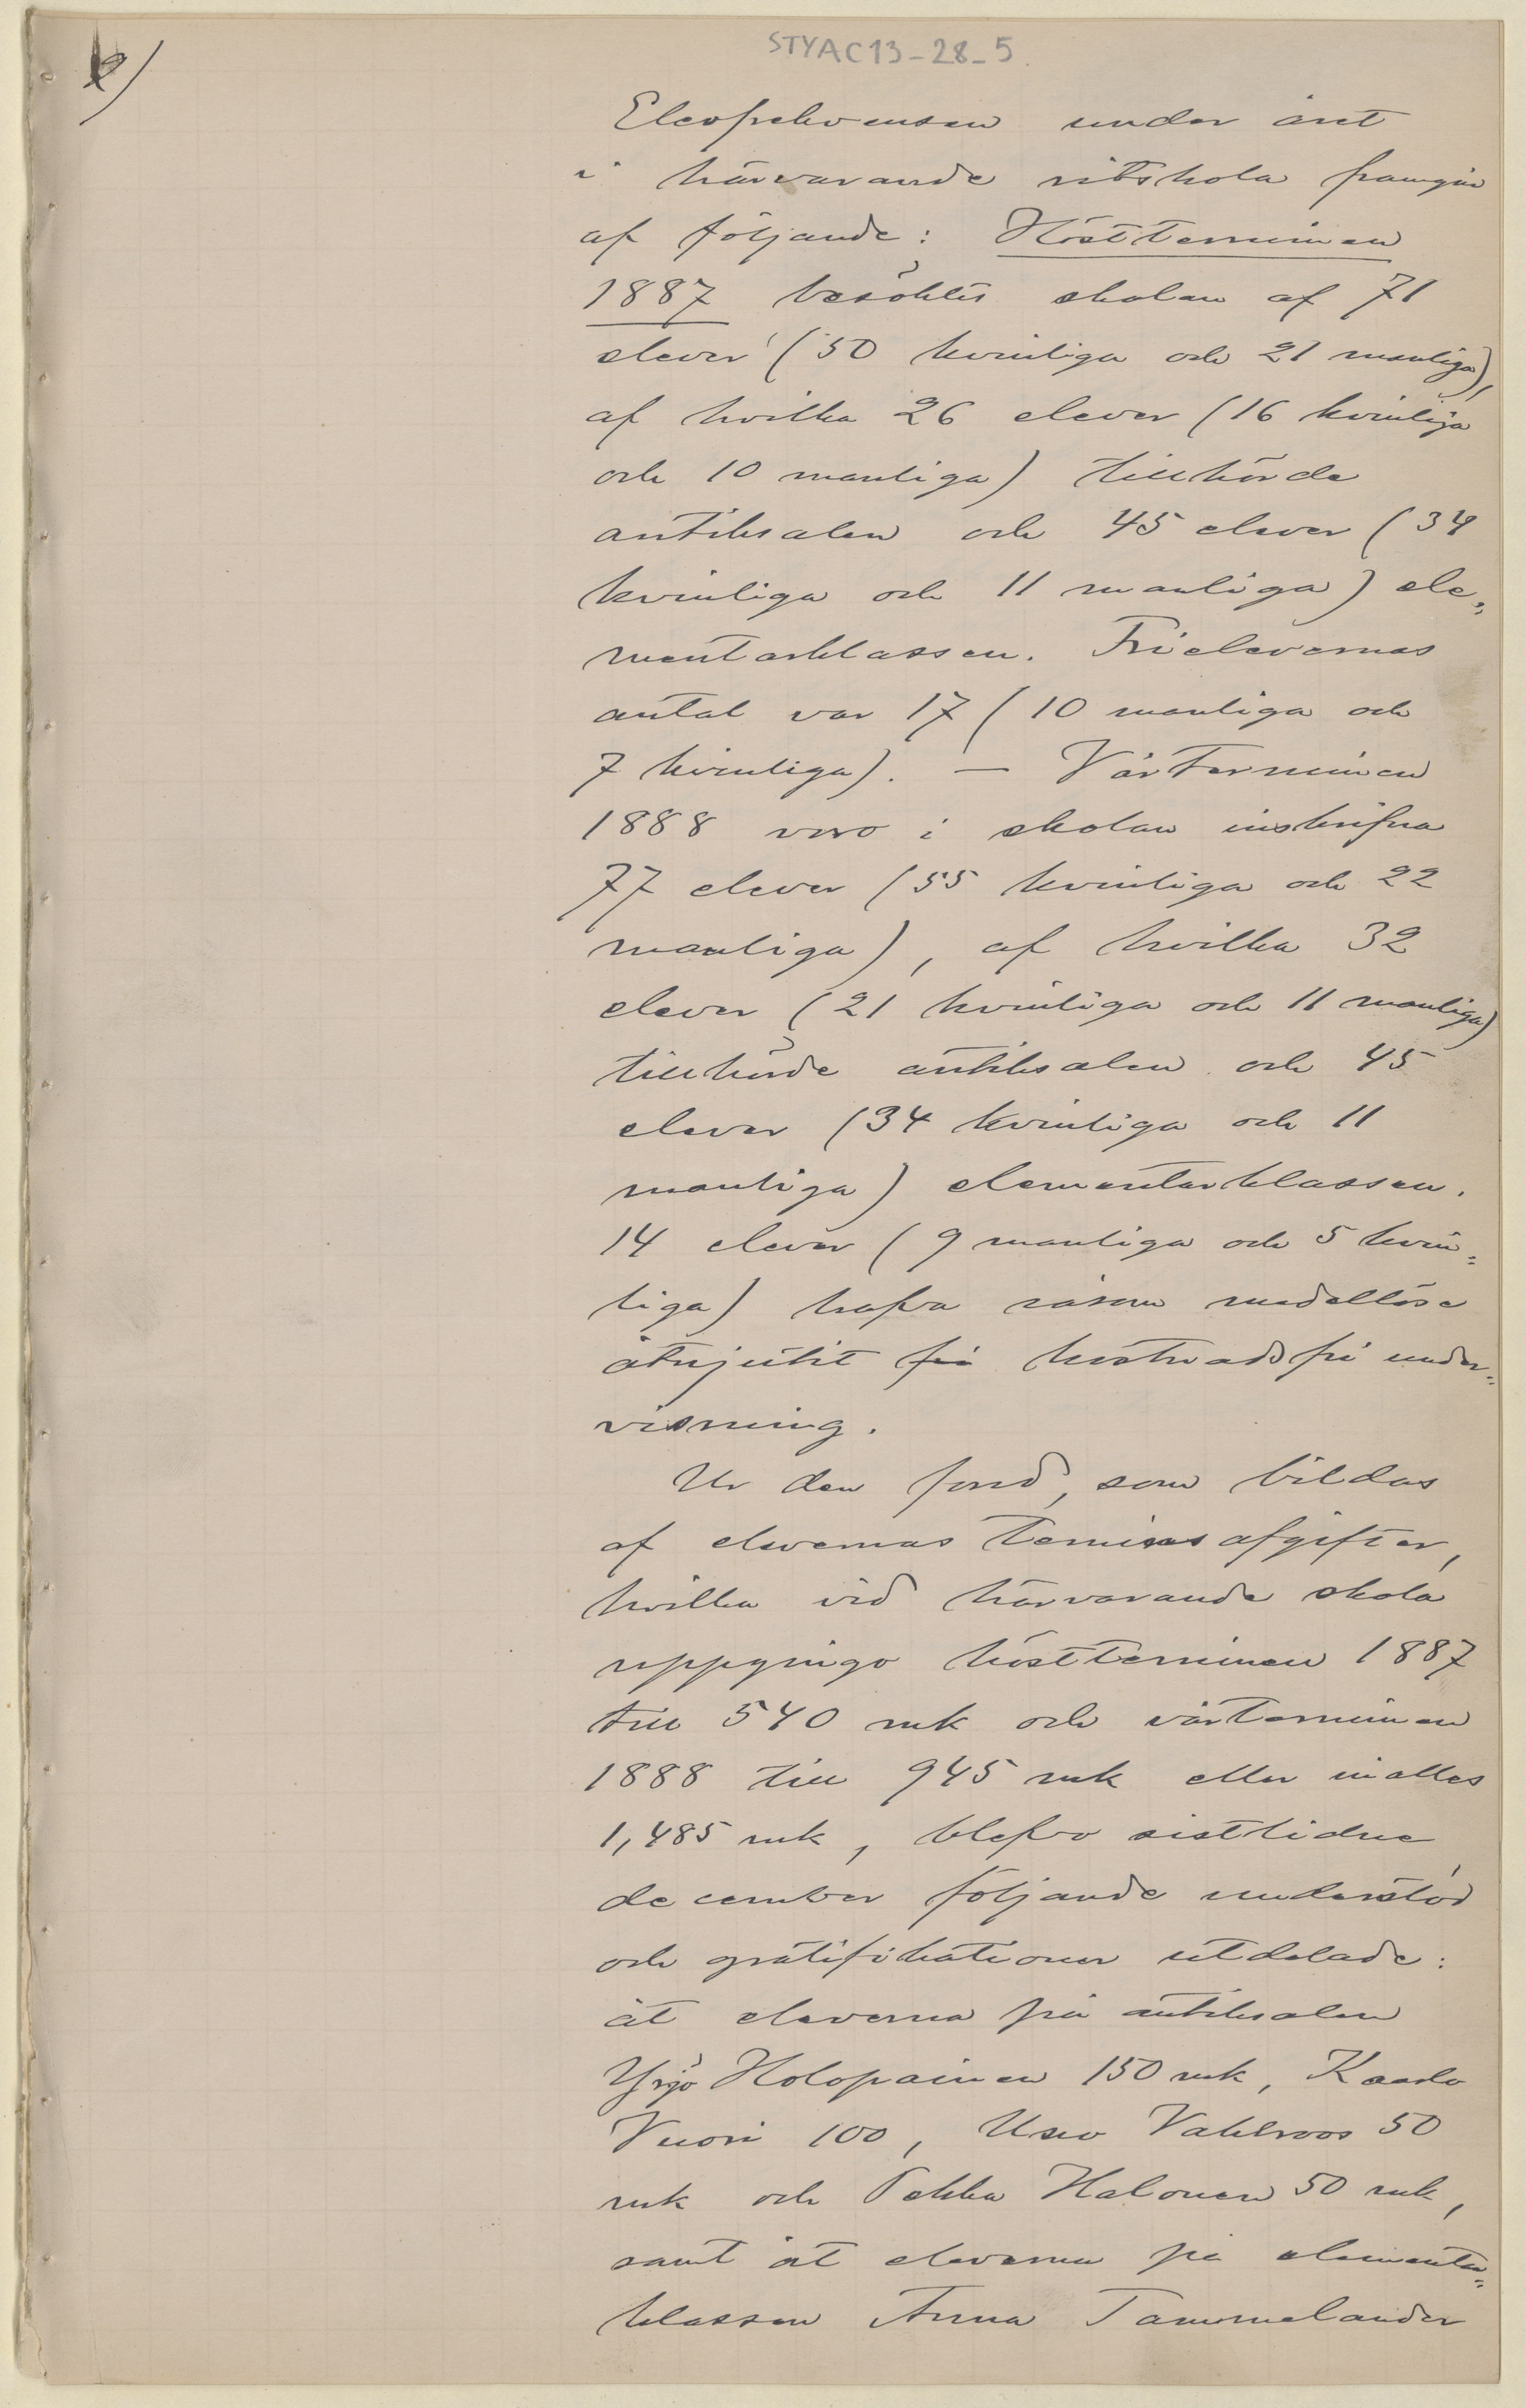 STYAC13-28-5.
Elevfrekvensen under året
i härvarande ritskola framgår
af följande: Höstterminen
1887 besöktes skolan af 71
elever (50 kvinliga och 21 manliga),
af hvilka 26 elever (16 kvinliga
och 10 manliga) tillhörde
antiksalen och 45 elever (34
kvinliga och 11 manliga) ele=
mentarklassen. Frielevernas
antal var 17 (10 manliga och
7 kvinliga). — Vårterminen
1888 voro i skolan inskrifna
77 elever (55 kvinliga och 22
manliga), af hvilka 32
elever (21 kvinliga och 11 manliga)
tillhörde antiksalen och 45
elever (34 kvinliga och 11
manliga) elementarklassen.
14 elever (9 manliga och 5 kvin=
liga) hafva såsom medellöse
åtnjutit fri kostnadsfri under=
visning.
Ur den fond, som bildas
af elevernas terminsafgifter,
hvilka vid härvarande skola
uppgingo höstterminen 1887
till 540 mk och vårterminen
1888 till 945 mk eller inalles
1,485 mk, blefvo sistlidne
december följande understöd
och gratifikationer utdelade:
åt eleverna på antiksalen
Yrjö Holopainen 150 mk, Kaarlo
Vuori 100, Uno Vahlroos 50
mk och Pekka Halonen 50 mk,
samt åt eleverna på elementar=
klassen Anna Tammelander